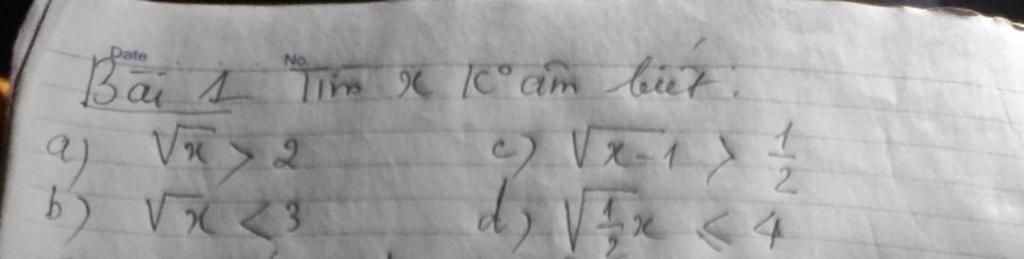 Date No.
Bài 1 Tìm x K° âm biết:
a) √x > 2 c) √x-1 > 1/2
b) √x < 3 d) √1/2x < 4